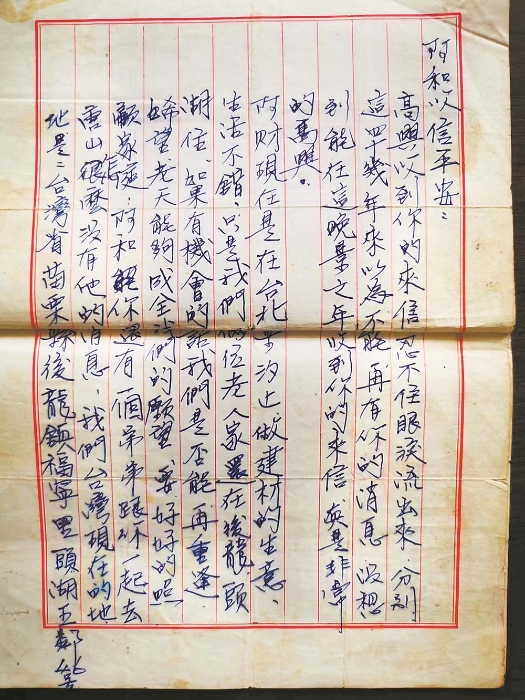 阿和以信平安：
高興以到你的來信忍不住眼淚流出來 分别
這四十幾年來以為不能 再有你的消息 沒想
到能在這晚景之年收到你的來信 真是非常
的高興。
阿财現在是在台北市汐止做建材的生意、
生活不錯、只是我們 位老人家還在後龍 頭
湖住、如果有機會的話我們是否能 再重逢
希望老天能夠成全 們的願望 要好好的照
顧家 阿和 你還有一個弟弟跟你一起去
唐山怎麼沒有他的消息、我們台灣現在的地
地是：台灣省苗栗縣後龍鎮福寧里頭湖五鄰46号